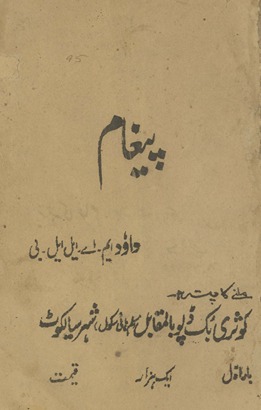 95
پیغام
داؤد ایم۔اے۔ایل ایل۔بی
ملنے کا پتہ:۔
کوثری بک ڈپو بالمقابل مسلم ہائی سکول، شہر سیالکوٹ
بار اوّل ایک ہزار قیمت